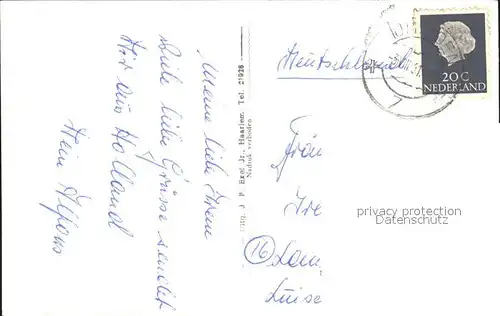 Meine liebe Irene
Viele liebe Grüsse sendet
Dir aus Holland
Dein Alfons
Uitg. J. F. Exel Jr., Haarlem. Tel. 21926
Nadruk verboden
Deutschland
20 C
NEDERLAND
Frön
Ire
(16)
Luise
privacy protection
Datenschutz.